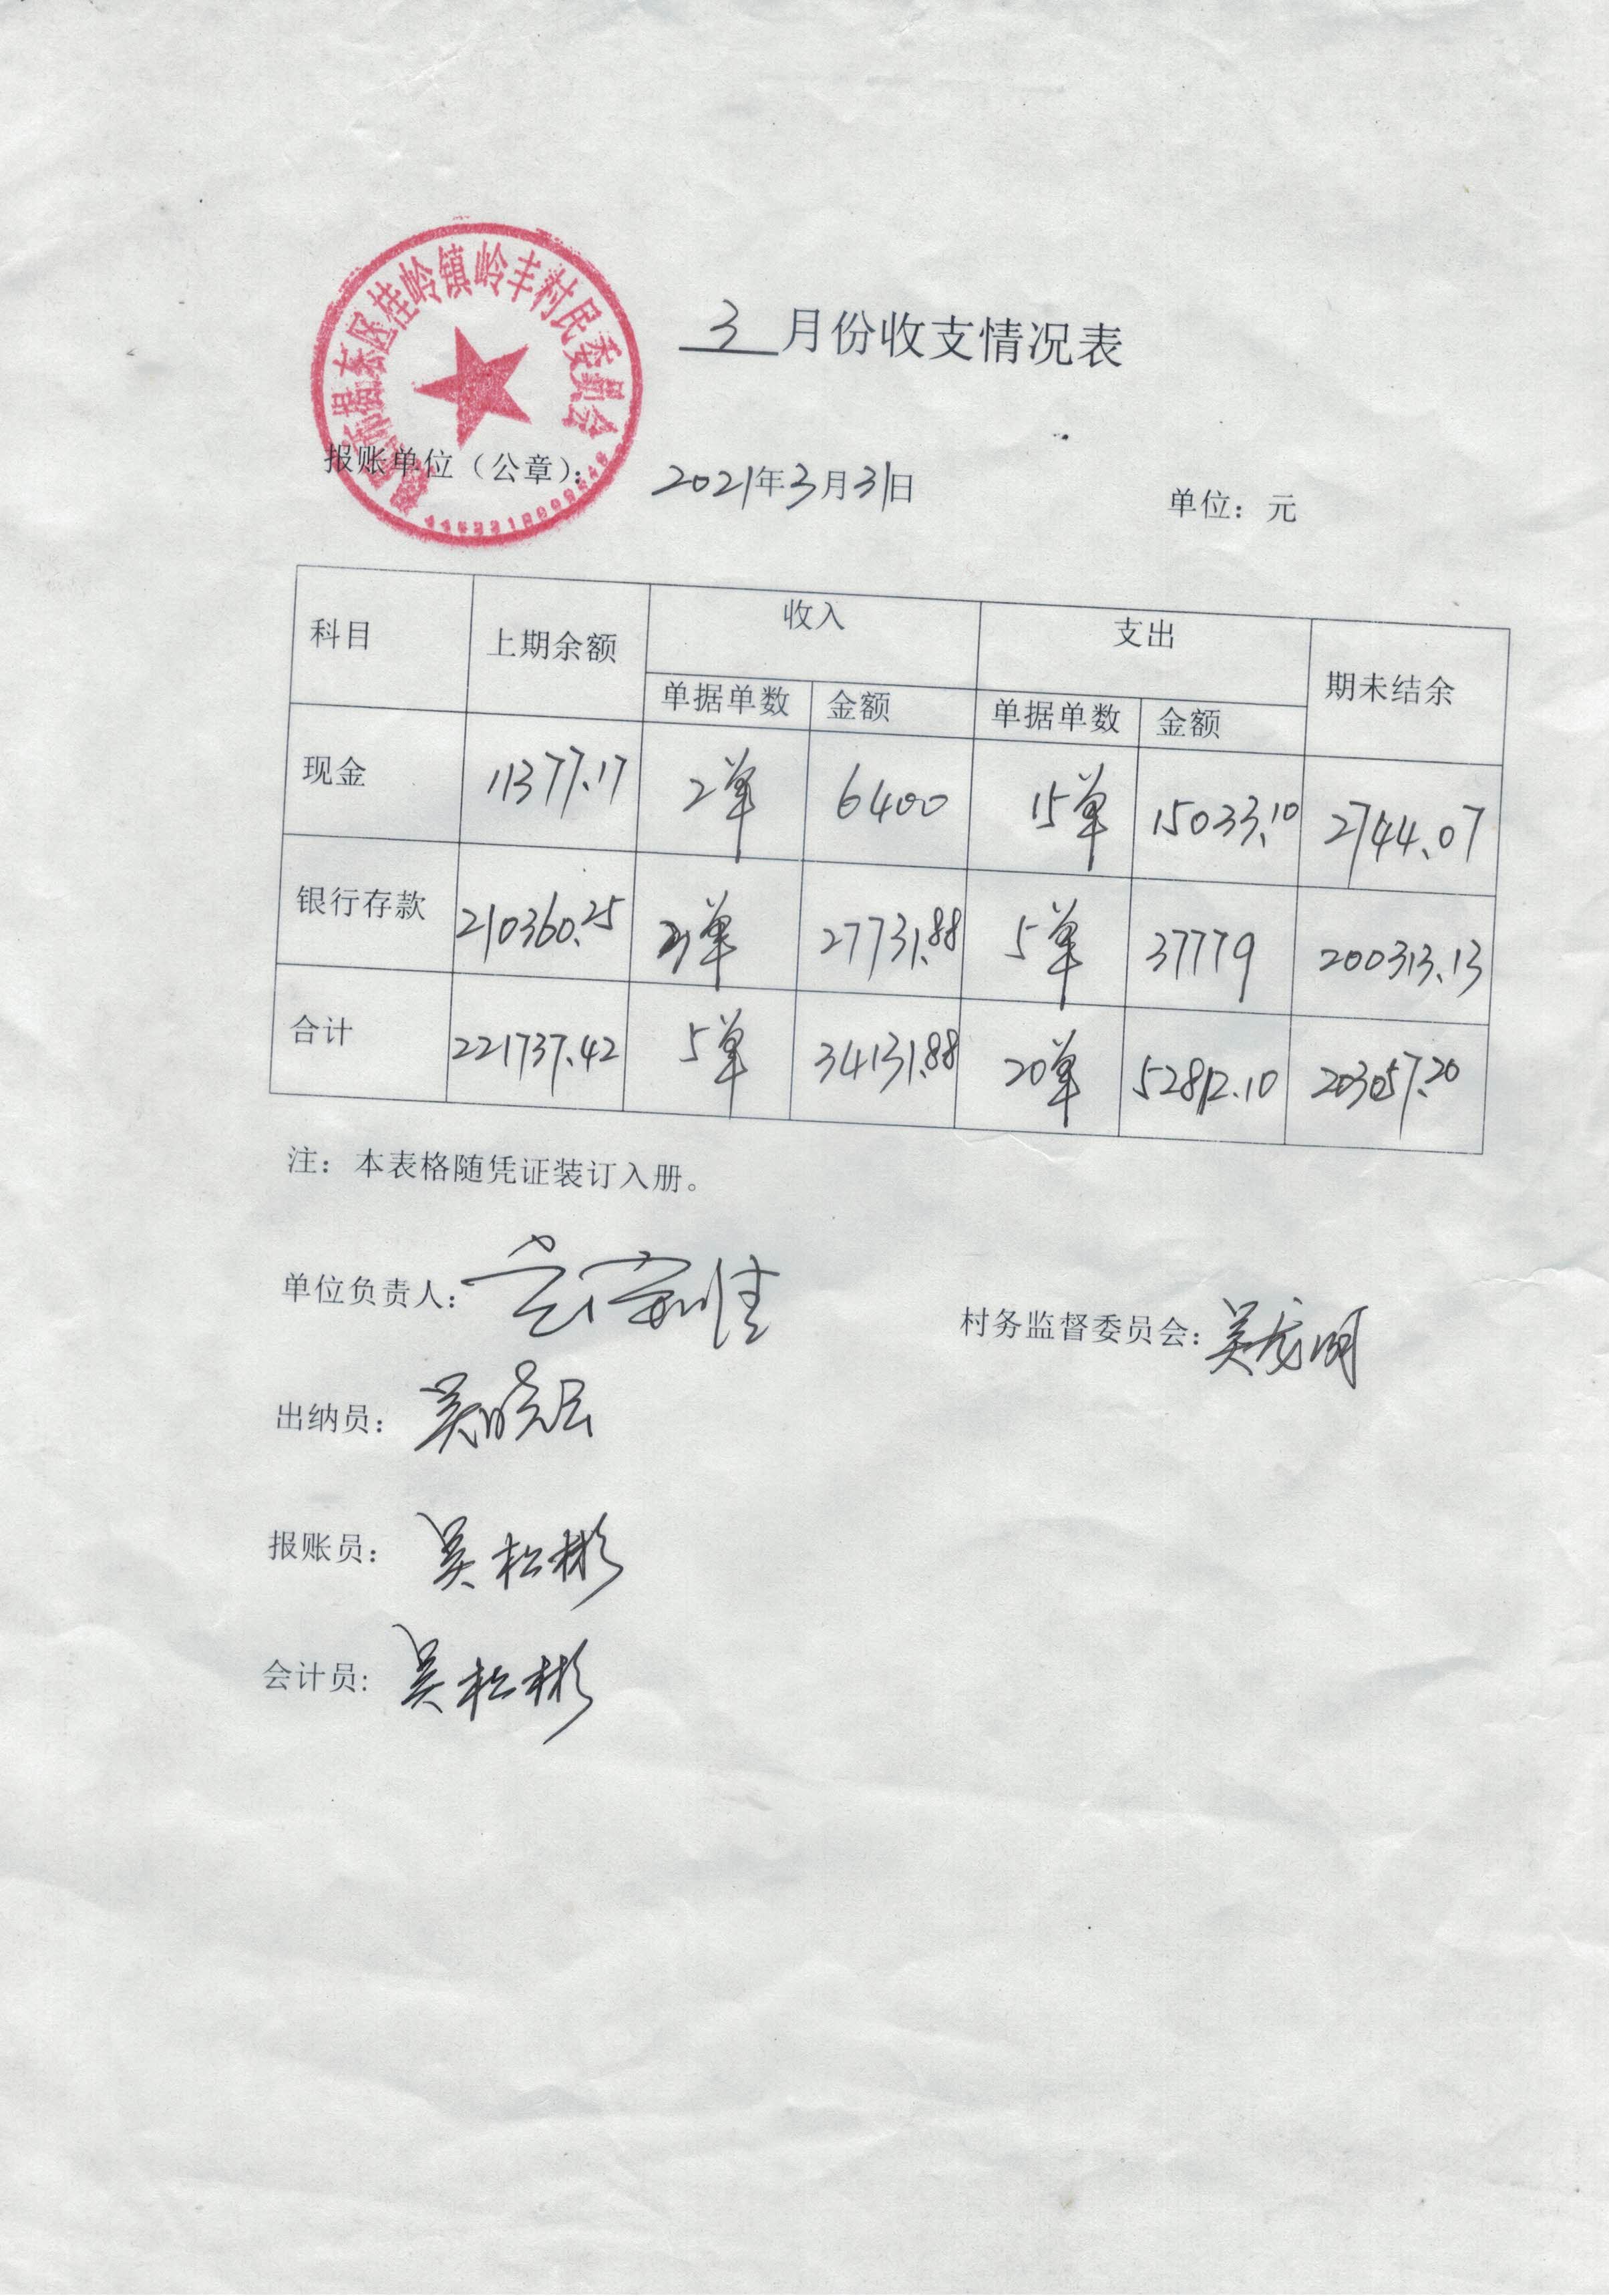 揭东区桂岭镇岭丰村民委员会
3月份收支情况表
报账单位（公章）： 2021年3月31日 单位：元
科目 上期余额 收入 支出 期未结余
单据单数 金额 单据单数 金额
现金 11377.17 2单 6400 15单 15033.10 2744.07
银行存款 210360.25 3单 27731.88 5单 37779 200313.13
合计 221737.42 5单 34131.88 20单 52812.10 203057.20
注：本表格随凭证装订入册。
单位负责人： 村务监督委员会：吴龙明
出纳员：吴晓云
报账员：吴松彬
会计员：吴松彬